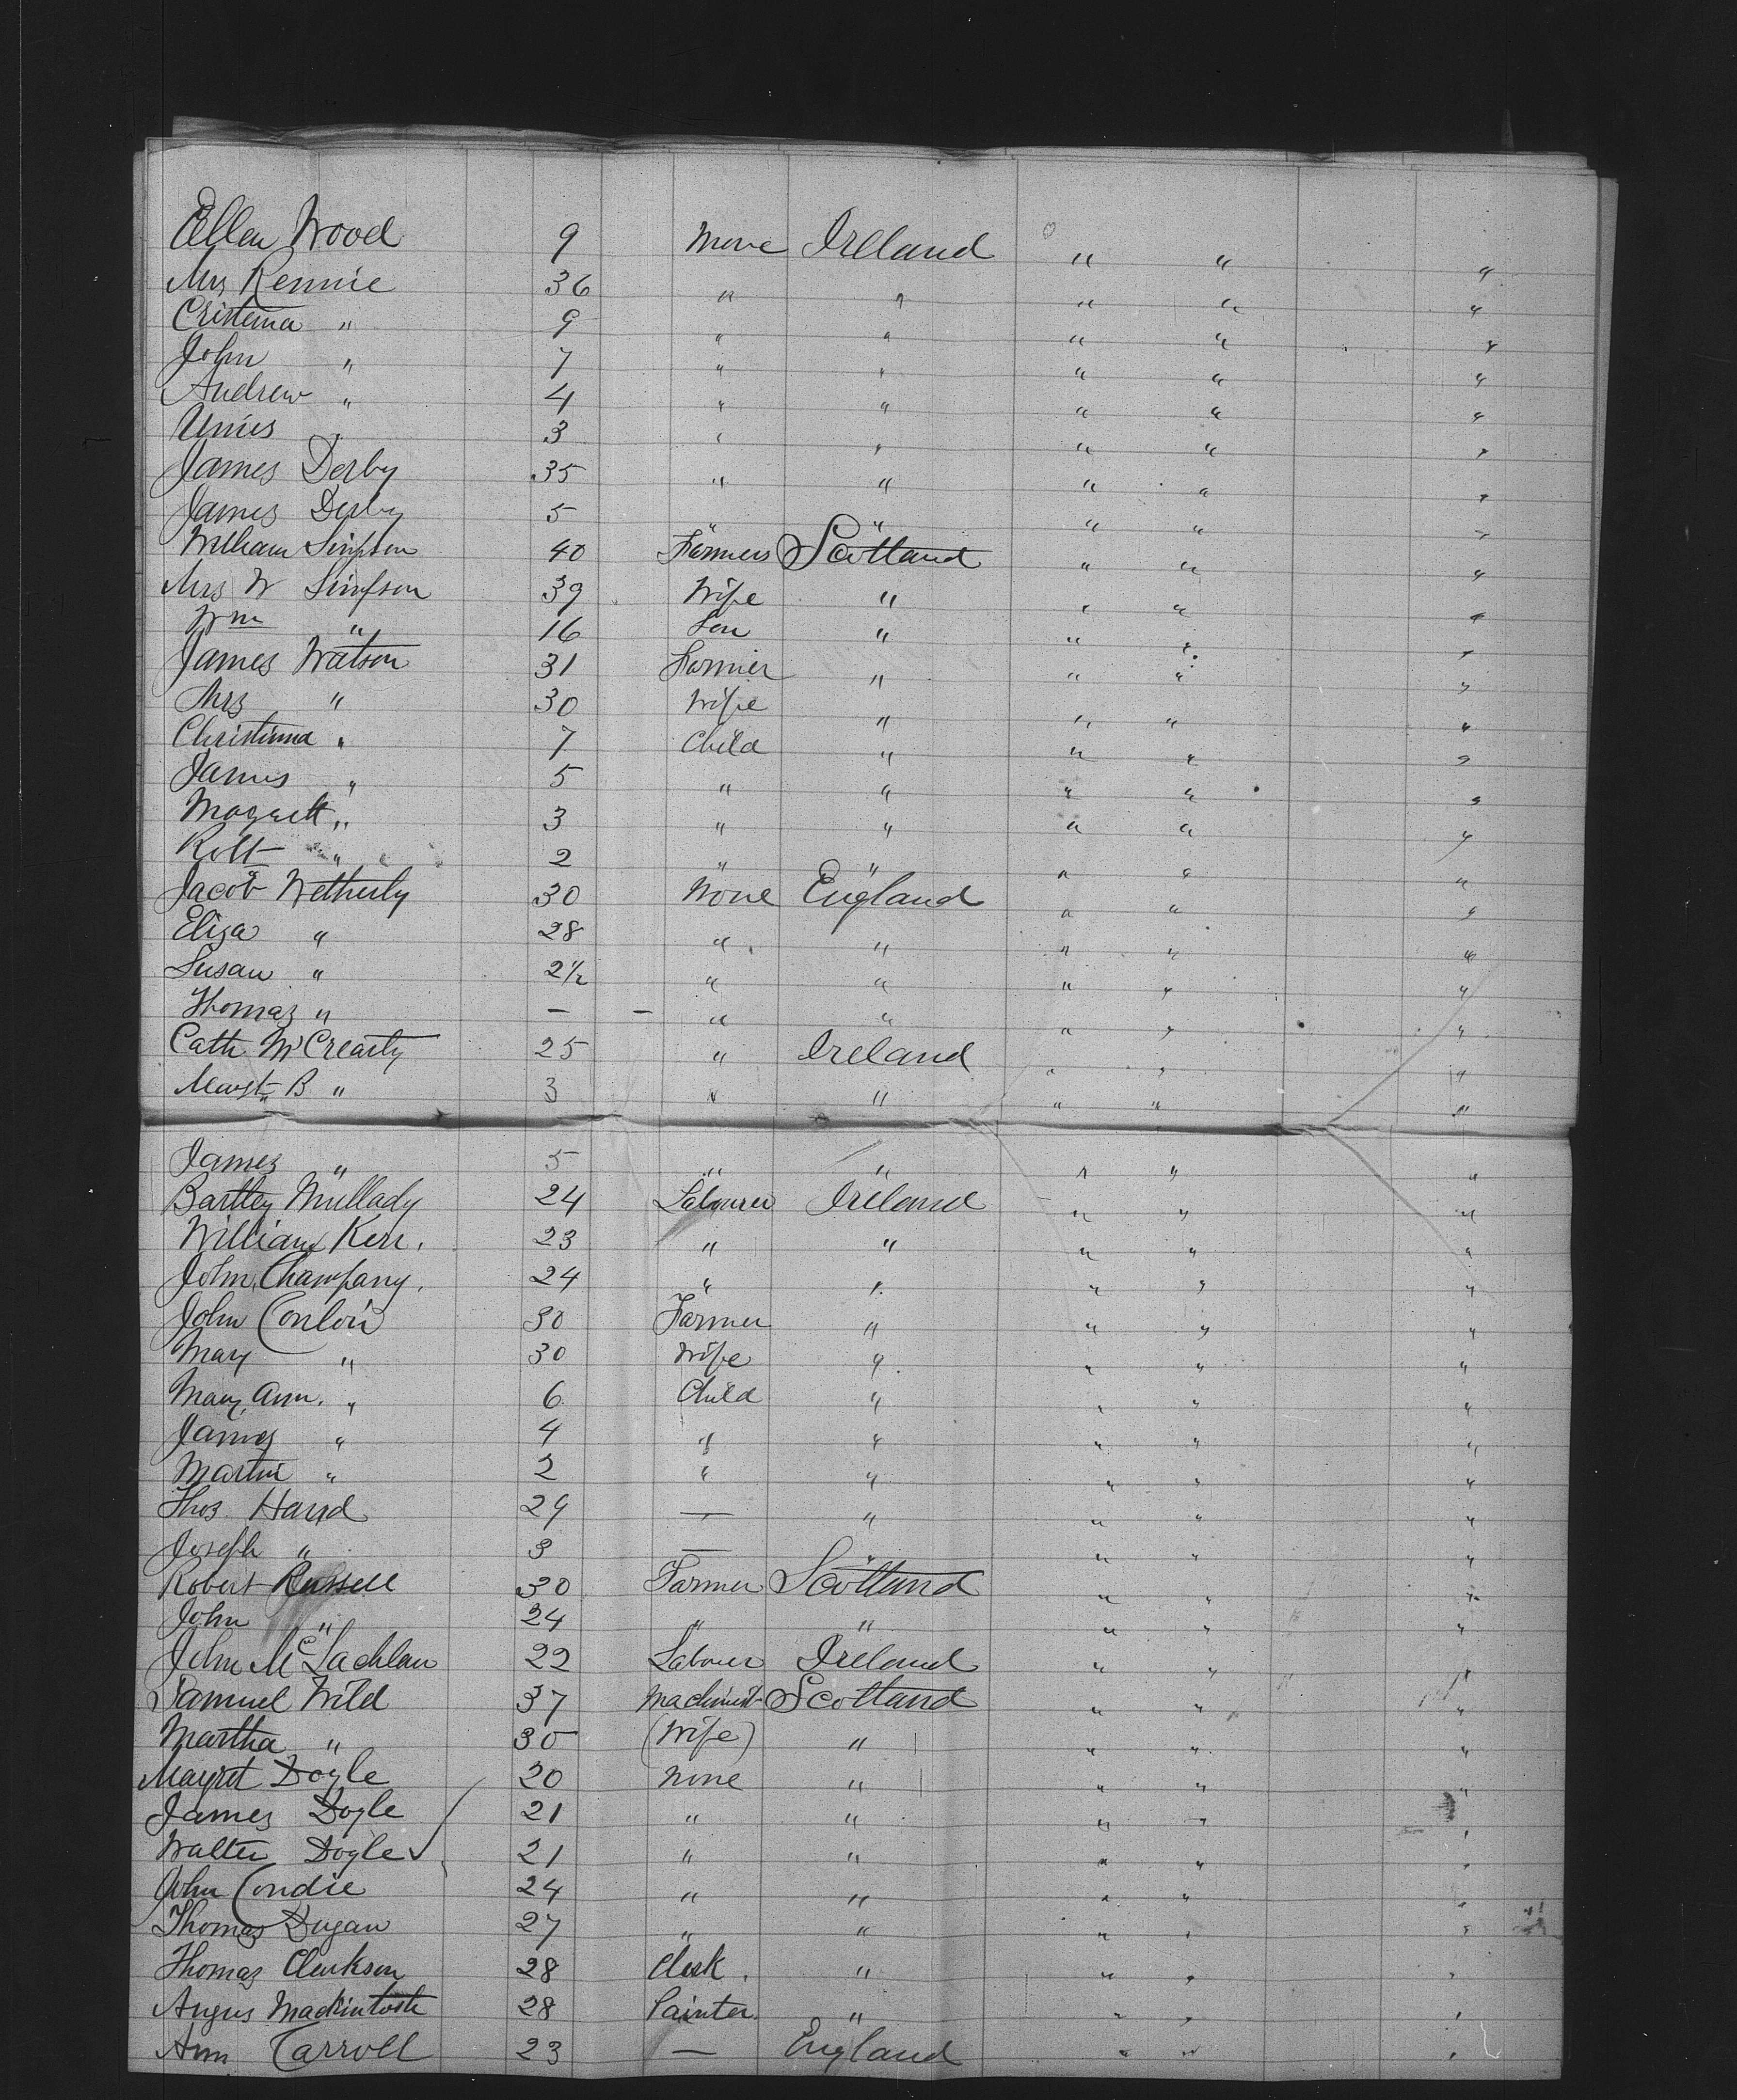 Ellen Wood 9 None Ireland " " "
Mrs Rennie 36 " " " " "
Cristema " 9 " " " " "
John " 7 " " " " "
Andrew " 4 " " " " "
" 3 " " " " "
James Derby 35 " " " " "
James Derby 5 " " " " "
William Simpson 40 Farmers Scotland " " "
Mrs W Simpson 39 Wife " " " "
Wm " 16 Son " " " "
James Watson 31 Farmer " " " "
Mrs " 30 Wife " " " "
Christinna " 7 Child " " " "
James " 5 " " " " "
Magrett " 3 " " " " "
Robt " 2 " " " " "
Jacob Wetherly 30 None England " " "
Eliza " 28 " " " " "
Susan " 2½ " " " " "
Thomas " — — " " " " "
Cath McCrearty 25 " Ireland " " "
Margt B " 3 " " " " "
James " 5 " " " " "
Bartley Mullady 24 Labourer Ireland " " "
William Kerr. 23 " " " " "
John Champany. 24 " " " " "
John Conlon 30 Farmer " " " "
Mary " 30 Wife " " " "
Mary Ann. " 6 Child " " " "
James " 4 " " " " "
Martin " 2 " " " " "
Thos. Hand 29 — " " " "
Joseph " 3 — " " " "
Robert Russell 30 Farmer Scotland " " "
John " 24 " " " " "
John McLachlan 22 Labouer Ireland " " "
Samuel Wild 37 Machinist Scotland " " "
Martha " 30 (Wife) " " " "
Magret Doyle 20 None " " " "
James Doyle 21 " " " " "
Walter Doyle 21 " " " " "
John Condie 24 " " " " "
Thomas Dugan 27 " " " " "
Thomas Clarkson 28 Clerk. " " " "
Angus Mackintosh 28 Painter. " " " "
Ann Carroll 23 — England " " "